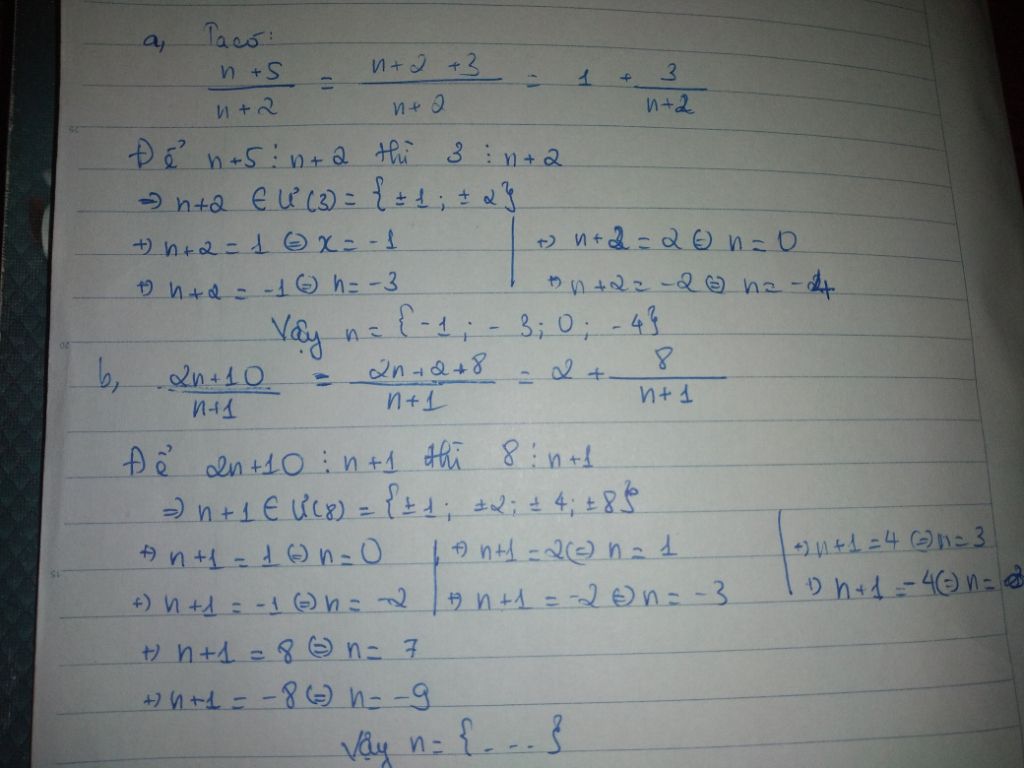 a, Ta có:
n+5 / n+2 = n+2+3 / n+2 = 1 + 3 / n+2
Để n+5 ⋮ n+2 thì 3 ⋮ n+2
⇒ n+2 ∈ Ư(3) = {±1; ±2}
+) n+2 = 1 ⇔ x = -1 | +) n+2 = 2 ⇔ n = 0
+) n+2 = -1 ⇔ n = -3 | +) n+2 = -2 ⇔ n = -4
Vậy n = {-1; -3; 0; -4}
b, 2n+10 / n+1 = 2n+2+8 / n+1 = 2 + 8 / n+1
Để 2n+10 ⋮ n+1 thì 8 ⋮ n+1
⇒ n+1 ∈ Ư(8) = {±1; ±2; ±4; ±8}
+) n+1 = 1 ⇔ n = 0 | +) n+1 = 2 ⇔ n = 1 | +) n+1 = 4 ⇔ n = 3
+) n+1 = -1 ⇔ n = -2 | +) n+1 = -2 ⇔ n = -3 | +) n+1 = -4 ⇔ n =
+) n+1 = 8 ⇔ n = 7
+) n+1 = -8 ⇔ n = -9
Vậy n = {...}